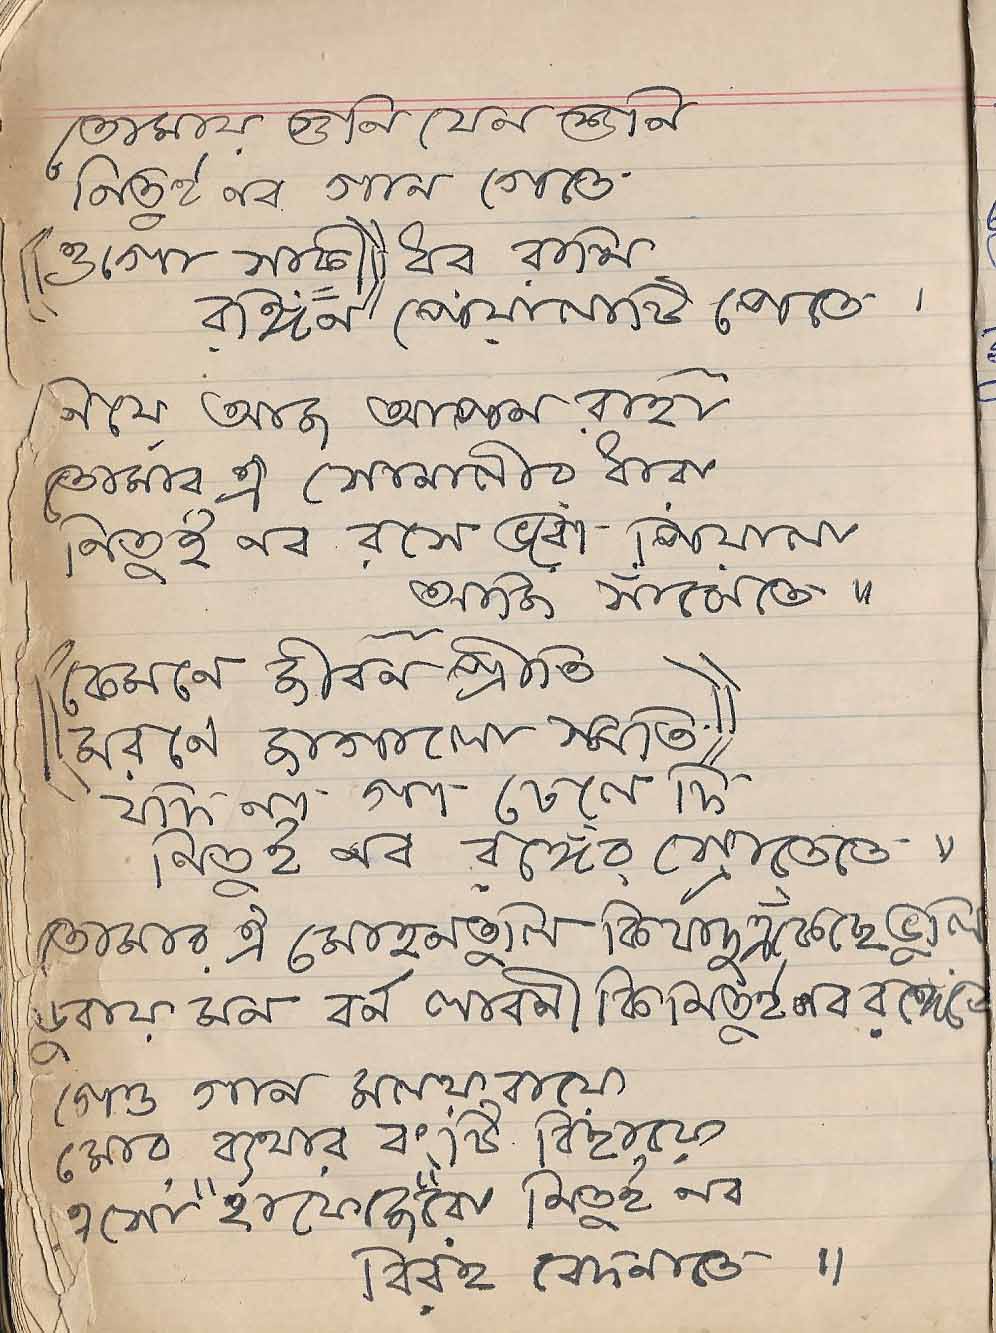 তোমায় শুনি যেন শুনি
নিতুই নব গান গেতে
((ওগো সাকী)) ধর রাখি
রঙ্গিন পেয়ালাটি পেতে ।
নিয়ে আজ আপন রাহী
তোমার ঐ সোনালীর ধারা
নিতুই নব রসে ভরা পিয়ালা
আজি সাঁঝেতে ॥
((কেমনে জীবন প্রীতি
মরণে জাগালো স্মৃতি))
যদি না গা ঢেলে দি
নিতুই নব রঙ্গের স্রোতেতে ॥
তোমার ঐ মোহনতুলি কি যাদু ভুলি
ডুবায় মন বর্ন লাবনী কি নিতুই নব রঙ্গেতে
গেও গান মলয় বায়ে
মোর ব্যথার বংটি বিছায়ে
এসো "হাফেজেরো" নিতুই নব
বিরহ বেদনাতে ॥